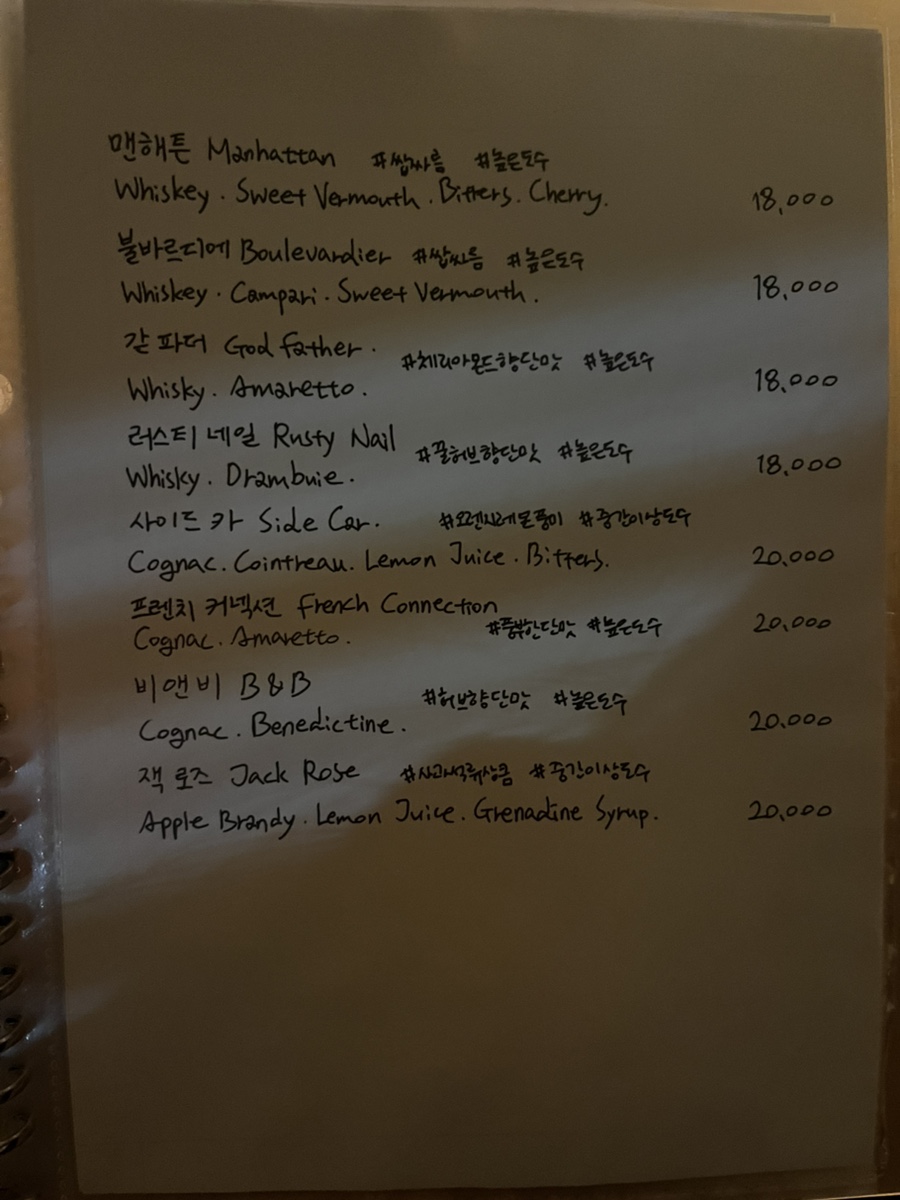 맨해튼 Manhattan #쌉싸름 #높은도수
Whiskey . Sweet Vermouth . Bitters. Cherry. 18,000
불바르디에 Boulevardier #쌉싸름 #높은도수
Whiskey . Campari . Sweet Vermouth . 18.000
갇파더 God father . #체리아몬드향단맛 #높은도수
Whisky . Amaretto . 18,000
러스티 네일 Rusty Nail #꿀허브향단맛 #높은도수
Whisky . Drambuie . 18,000
사이드 카 Side Car. #오렌지레몬풍미 #중간이상도수
Cognac. Cointreau. Lemon Juice . Bitters. 20,000
프렌치 커넥션 French Connection
Cognac . Amaretto . #풍부한단맛 #높은도수 20,000
비앤비 B&B #허브향단맛 #높은도수
Cognac . Benedictine . 20.000
잭 로즈 Jack Rose #사과석류상큼 #중간이상도수
Apple Brandy . Lemon Juice . Grenadine Syrup. 20,000